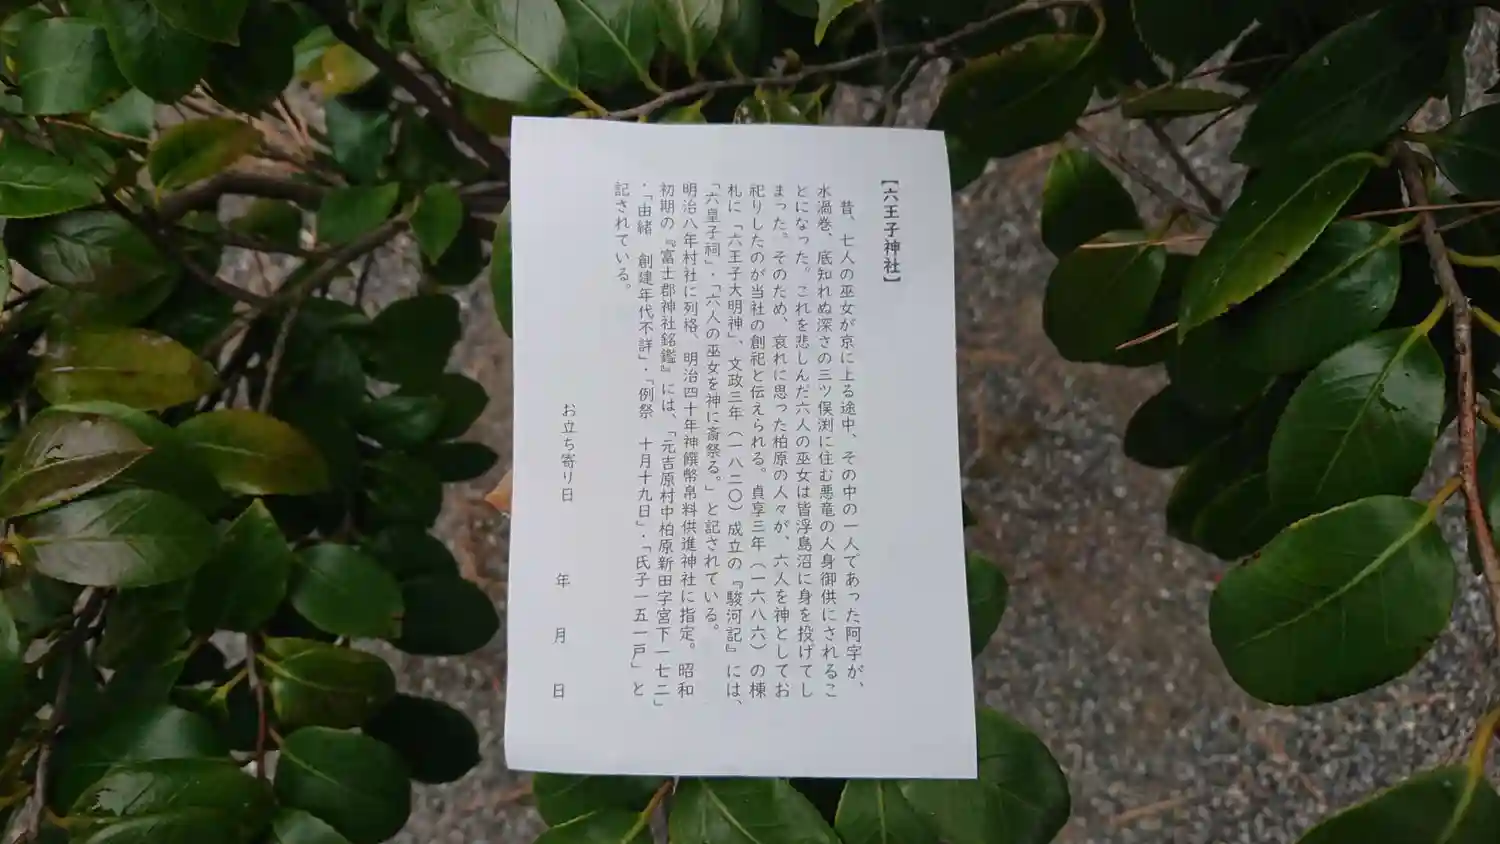 【六王子神社】
昔、七人の巫女が京に上る途中、その中の一人であった阿字が、
水渦巻、底知れぬ深さの三ツ俣渕に住む悪竜の人身御供にされるこ
とになった。これを悲しんだ六人の巫女は皆浮島沼に身を投げてし
まった。そのため、哀れに思った柏原の人々が、六人を神としてお
祀りしたのが当社の創祀と伝えられる。貞享三年（一六八六）の棟
札に「六王子大明神」、文政三年（一八二〇）成立の『駿河記』には、
「六皇子祠」・「六人の巫女を神に斎祭る。」と記されている。
明治八年村社に列格、明治四十年神饌幣帛料供進神社に指定。昭和
初期の『富士郡神社銘鑑』には、「元吉原村中柏原新田字宮下一七二」
・「由緒　創建年代不詳」・「例祭　十月十九日」・「氏子一五一戸」と
記されている。
お立ち寄り日　　　年　　月　　日